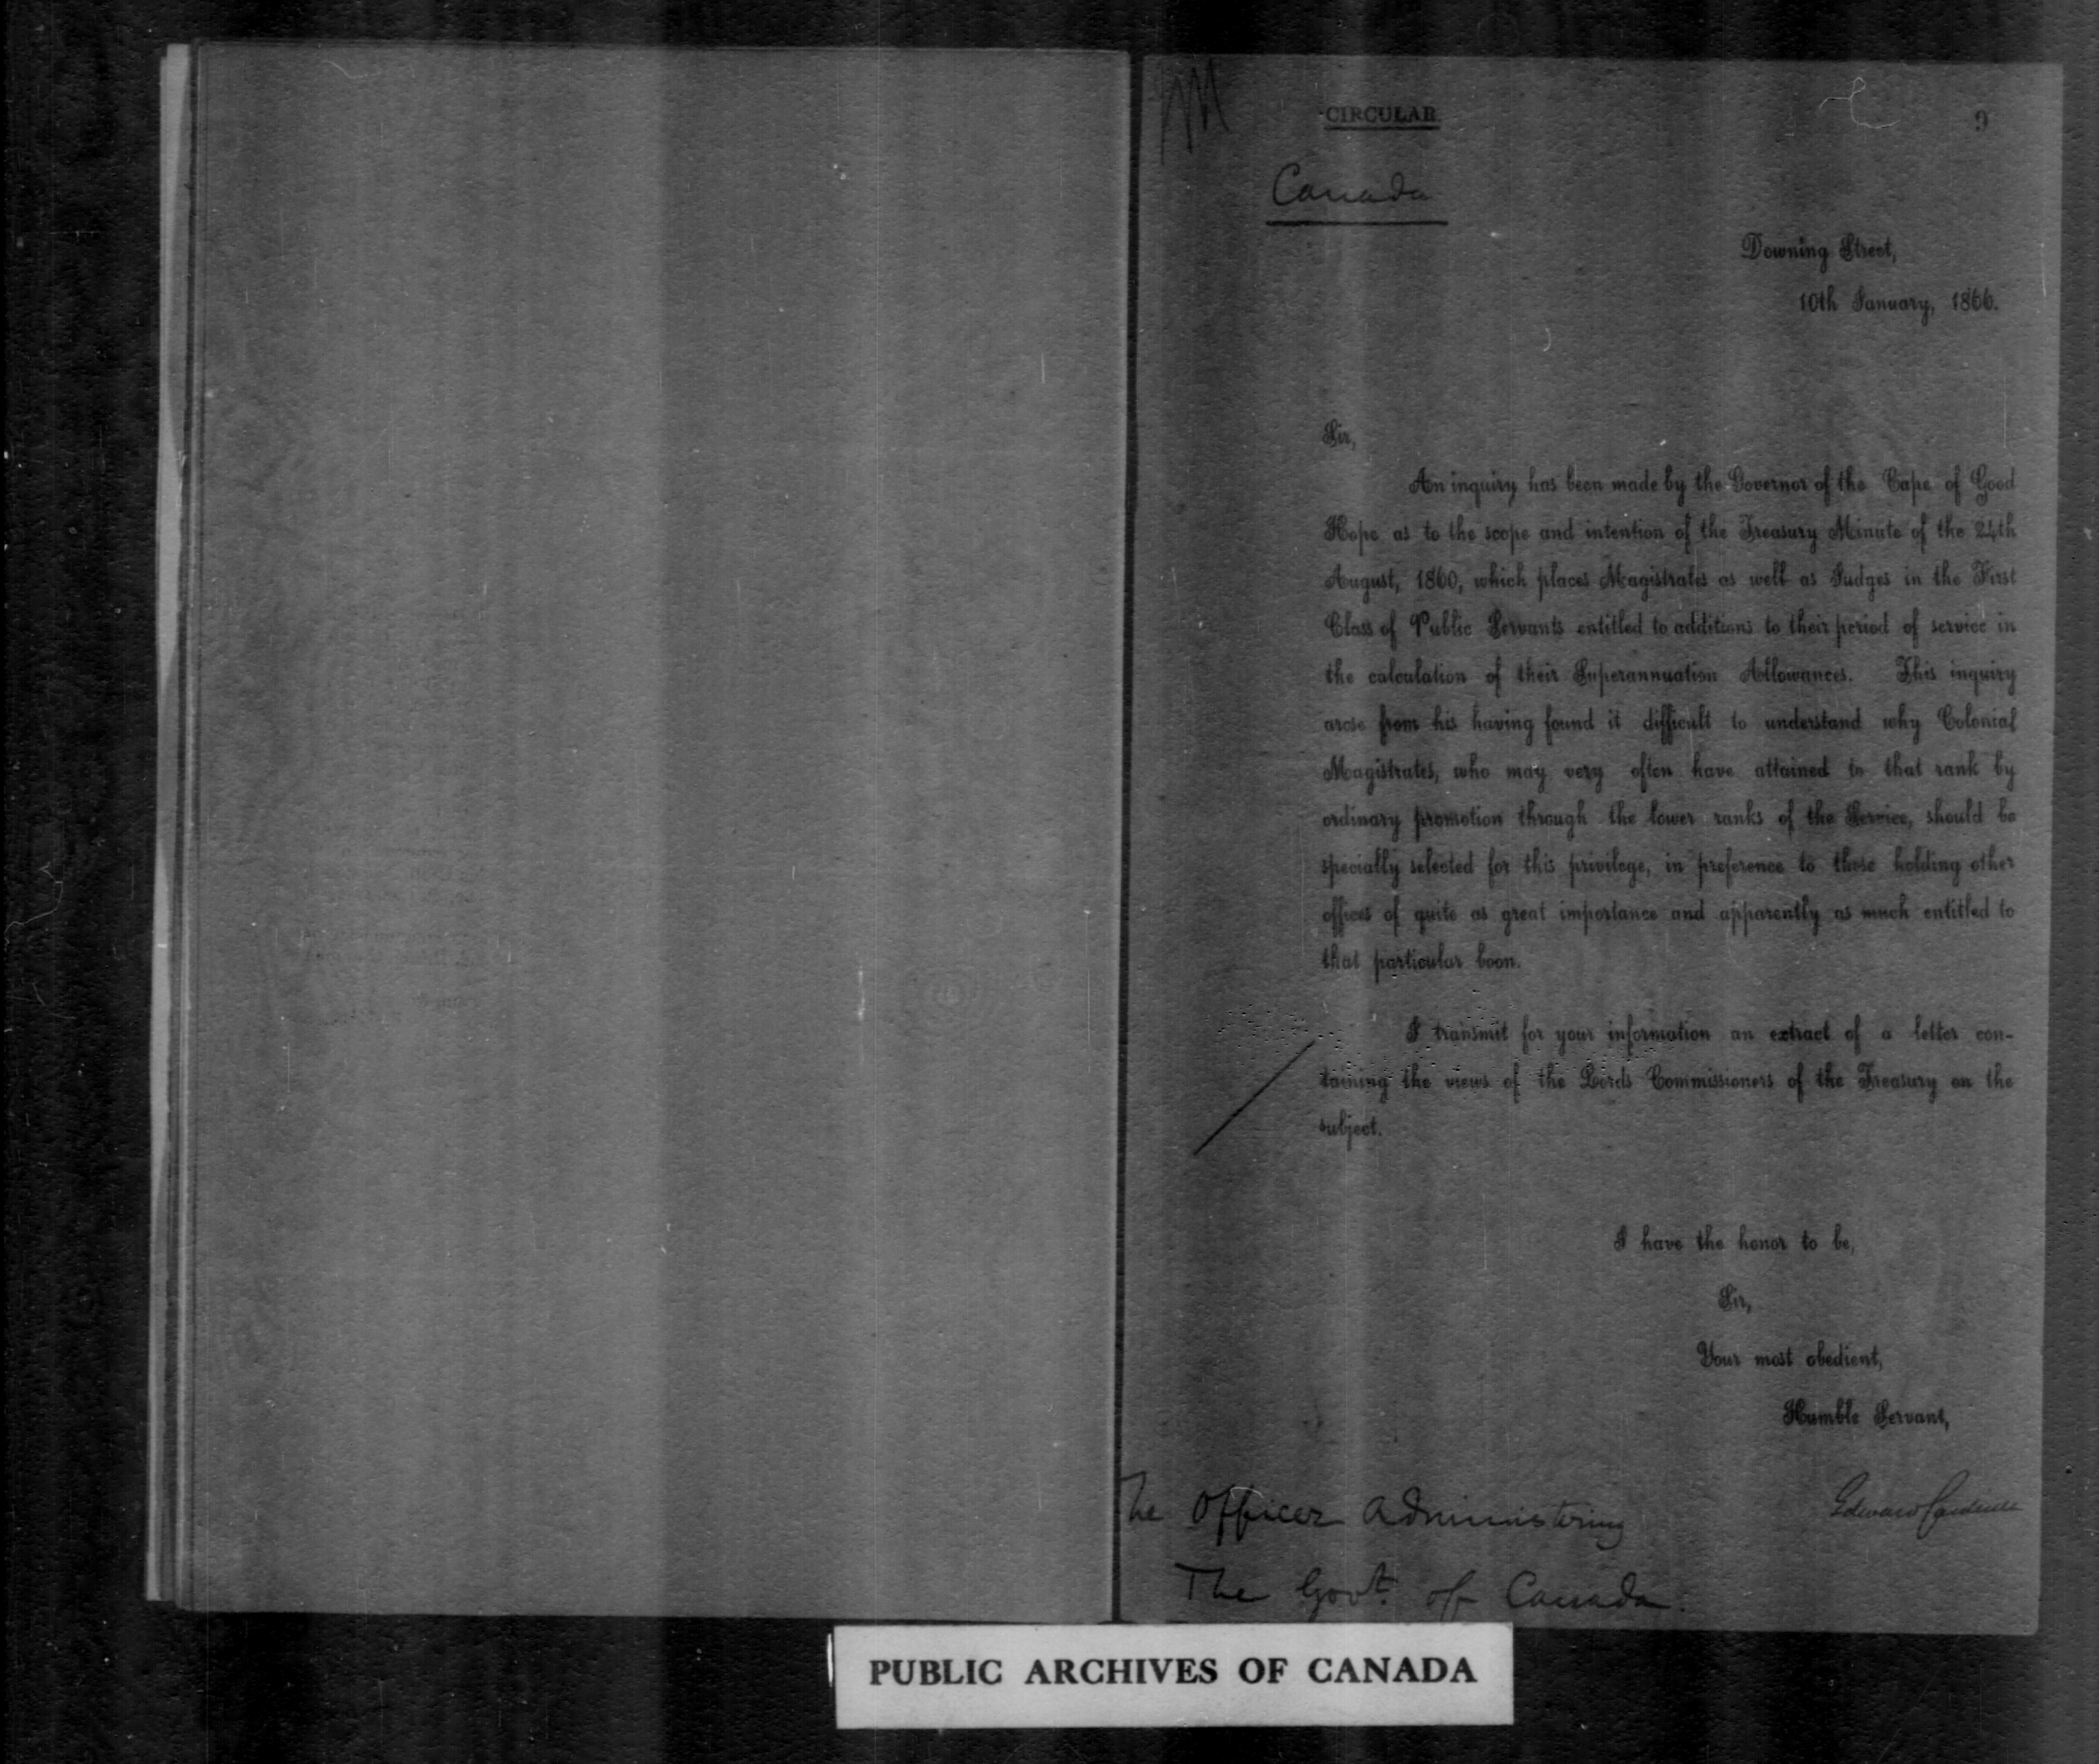 CIRCULAR.
9
Canada
Downing Street,
10th January, 1866.
Sir,
An inquiry has been made by the Governor of the Cape of Good
Hope as to the scope and intention of the Treasury Minute of the 24th
August, 1860, which places Magistrates as well as Judges in the First
Class of Public Servants entitled to additions to their period of service in
the calculation of their Superannuation Allowances. This inquiry
arose from his having found it difficult to understand why Colonial
Magistrates, who may very often have attained to that rank by
ordinary promotion through the lower ranks of the Service, should be
specially selected for this privilege, in preference to those holding other
offices of quite as great importance and apparently as much entitled to
that particular boon.
I transmit for your information an extract of a letter con-
taining the views of the Lords Commissioners of the Treasury on the
subject.
I have the honor to be,
Sir,
Your most obedient,
Humble Servant,
Edward Cardwell
The Officer Administering
The Govt. of Canada.
PUBLIC ARCHIVES OF CANADA